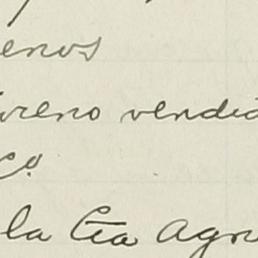 enos
oreno vendid
co.
la Cia Agri